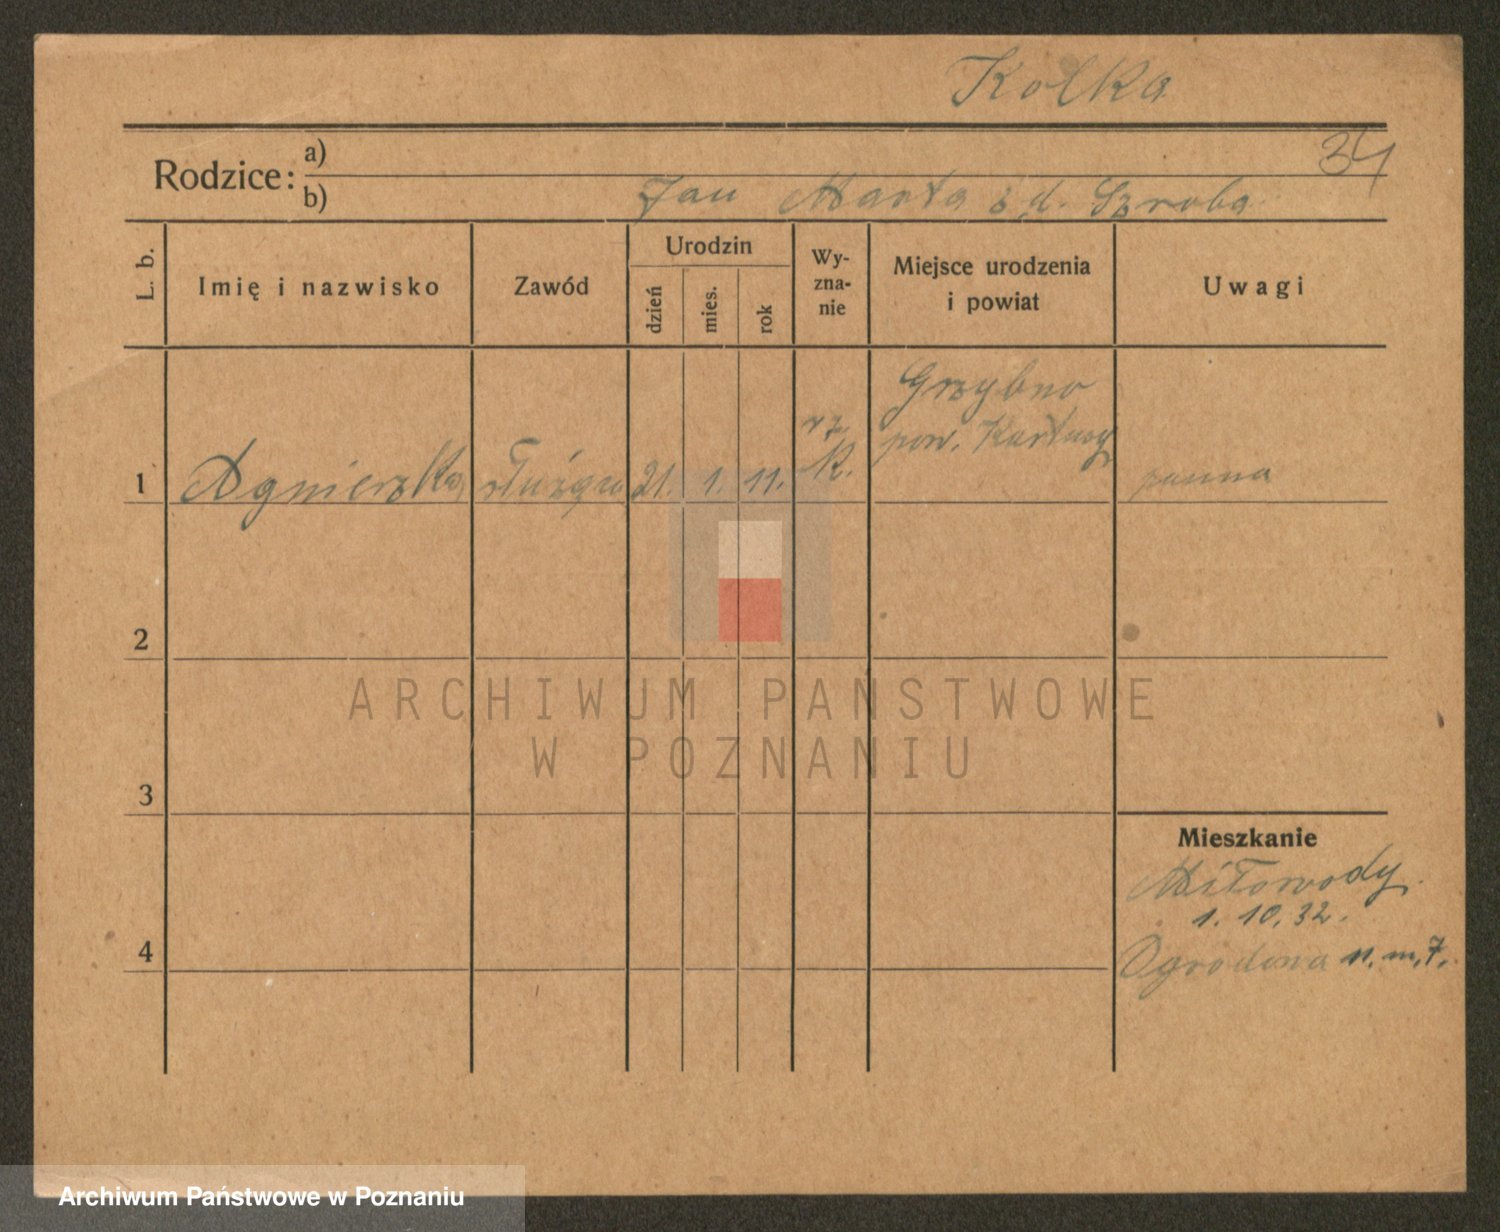 Kolka
34
Rodzice:
a)
b) Jan Marta z d. Szroba
L. b.
Imię i nazwisko
Zawód
Urodzin
dzień
mies.
rok
Wy-
zna-
nie
Miejsce urodzenia
i powiat
Uwagi
Grzybno
rz. pow. Kartuzy
1 Agnieszka służąca 21. 1. 11. K. panna
2
ARCHIWUM PAŃSTWOWE
W POZNANIU
3
Mieszkanie
Miłowody
1. 10. 32.
4 Ogrodowa 11. m. 7.
Archiwum Państwowe w Poznaniu